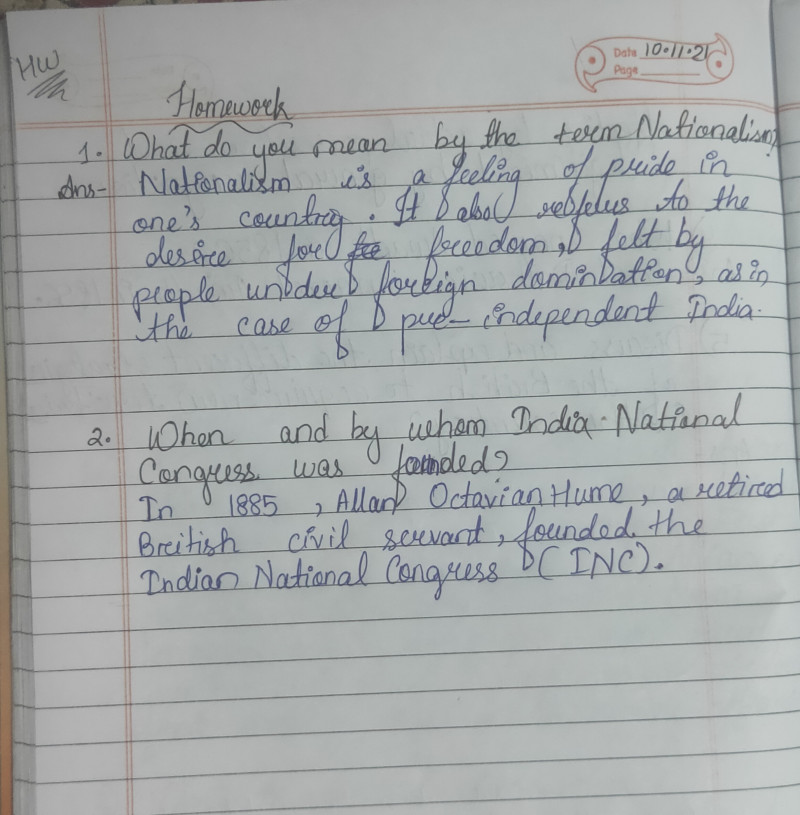 HW
Date 10.11.21
Page
Homework
1. What do you mean by the term Nationalism?
Ans- Nationalism is a feeling of pride in
one's country. It also refelus to the
desire for freedom, felt by
people under foreign domination, as in
the case of pre-independent India.
2. When and by whom India National
Congress was founded?
In 1885, Allan Octavian Hume, a retired
British civil servant, founded the
Indian National Congress (INC).